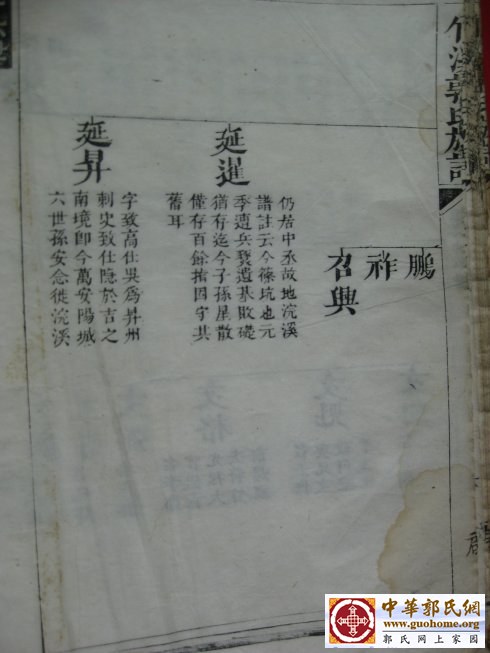 竹溪郭氏族譜
鵬
祚
召興
延暹
仍居中丞故地浣溪
譜註云今篠坑也元
季遭兵燹遺基敗礎
猶存迄今子孫星散
僅存百餘指因守其
舊耳
延昇
字致高仕吳為昇州
刺史致仕隱於吉之
南境卽今萬安陽城
六世孫安念徙浣溪
中華郭氏網
www.guohome.org
郭氏網上家園